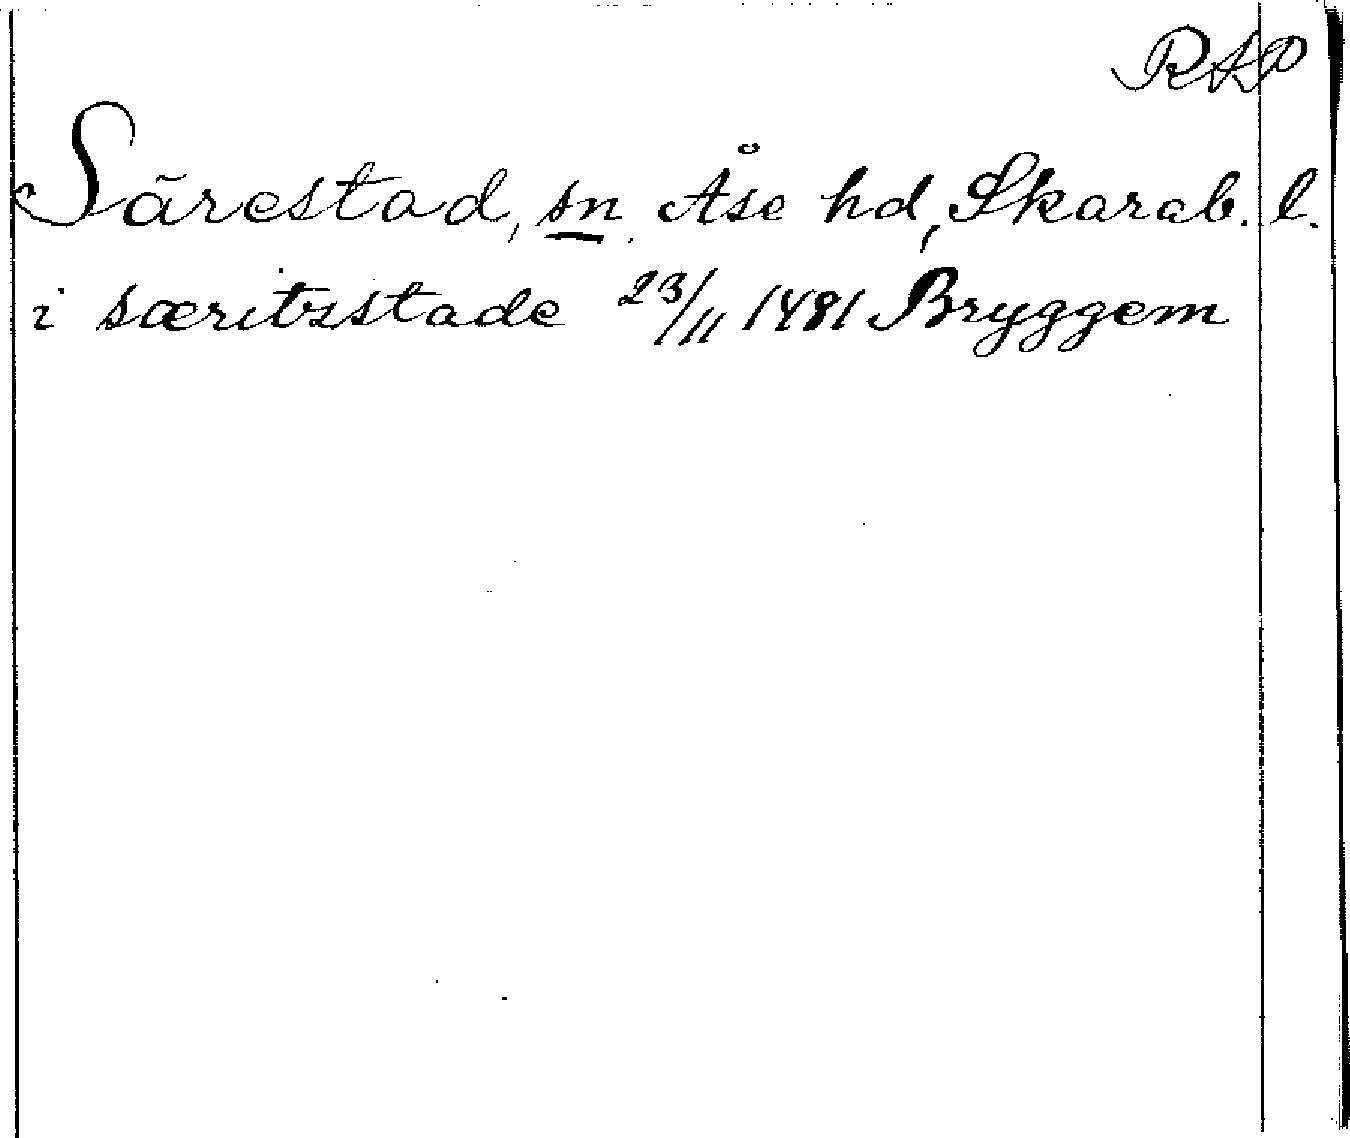 RAP
Särestad, sn, Åse hd, Skarab. l.
i særitzstade 23/11 1481 Bryggem